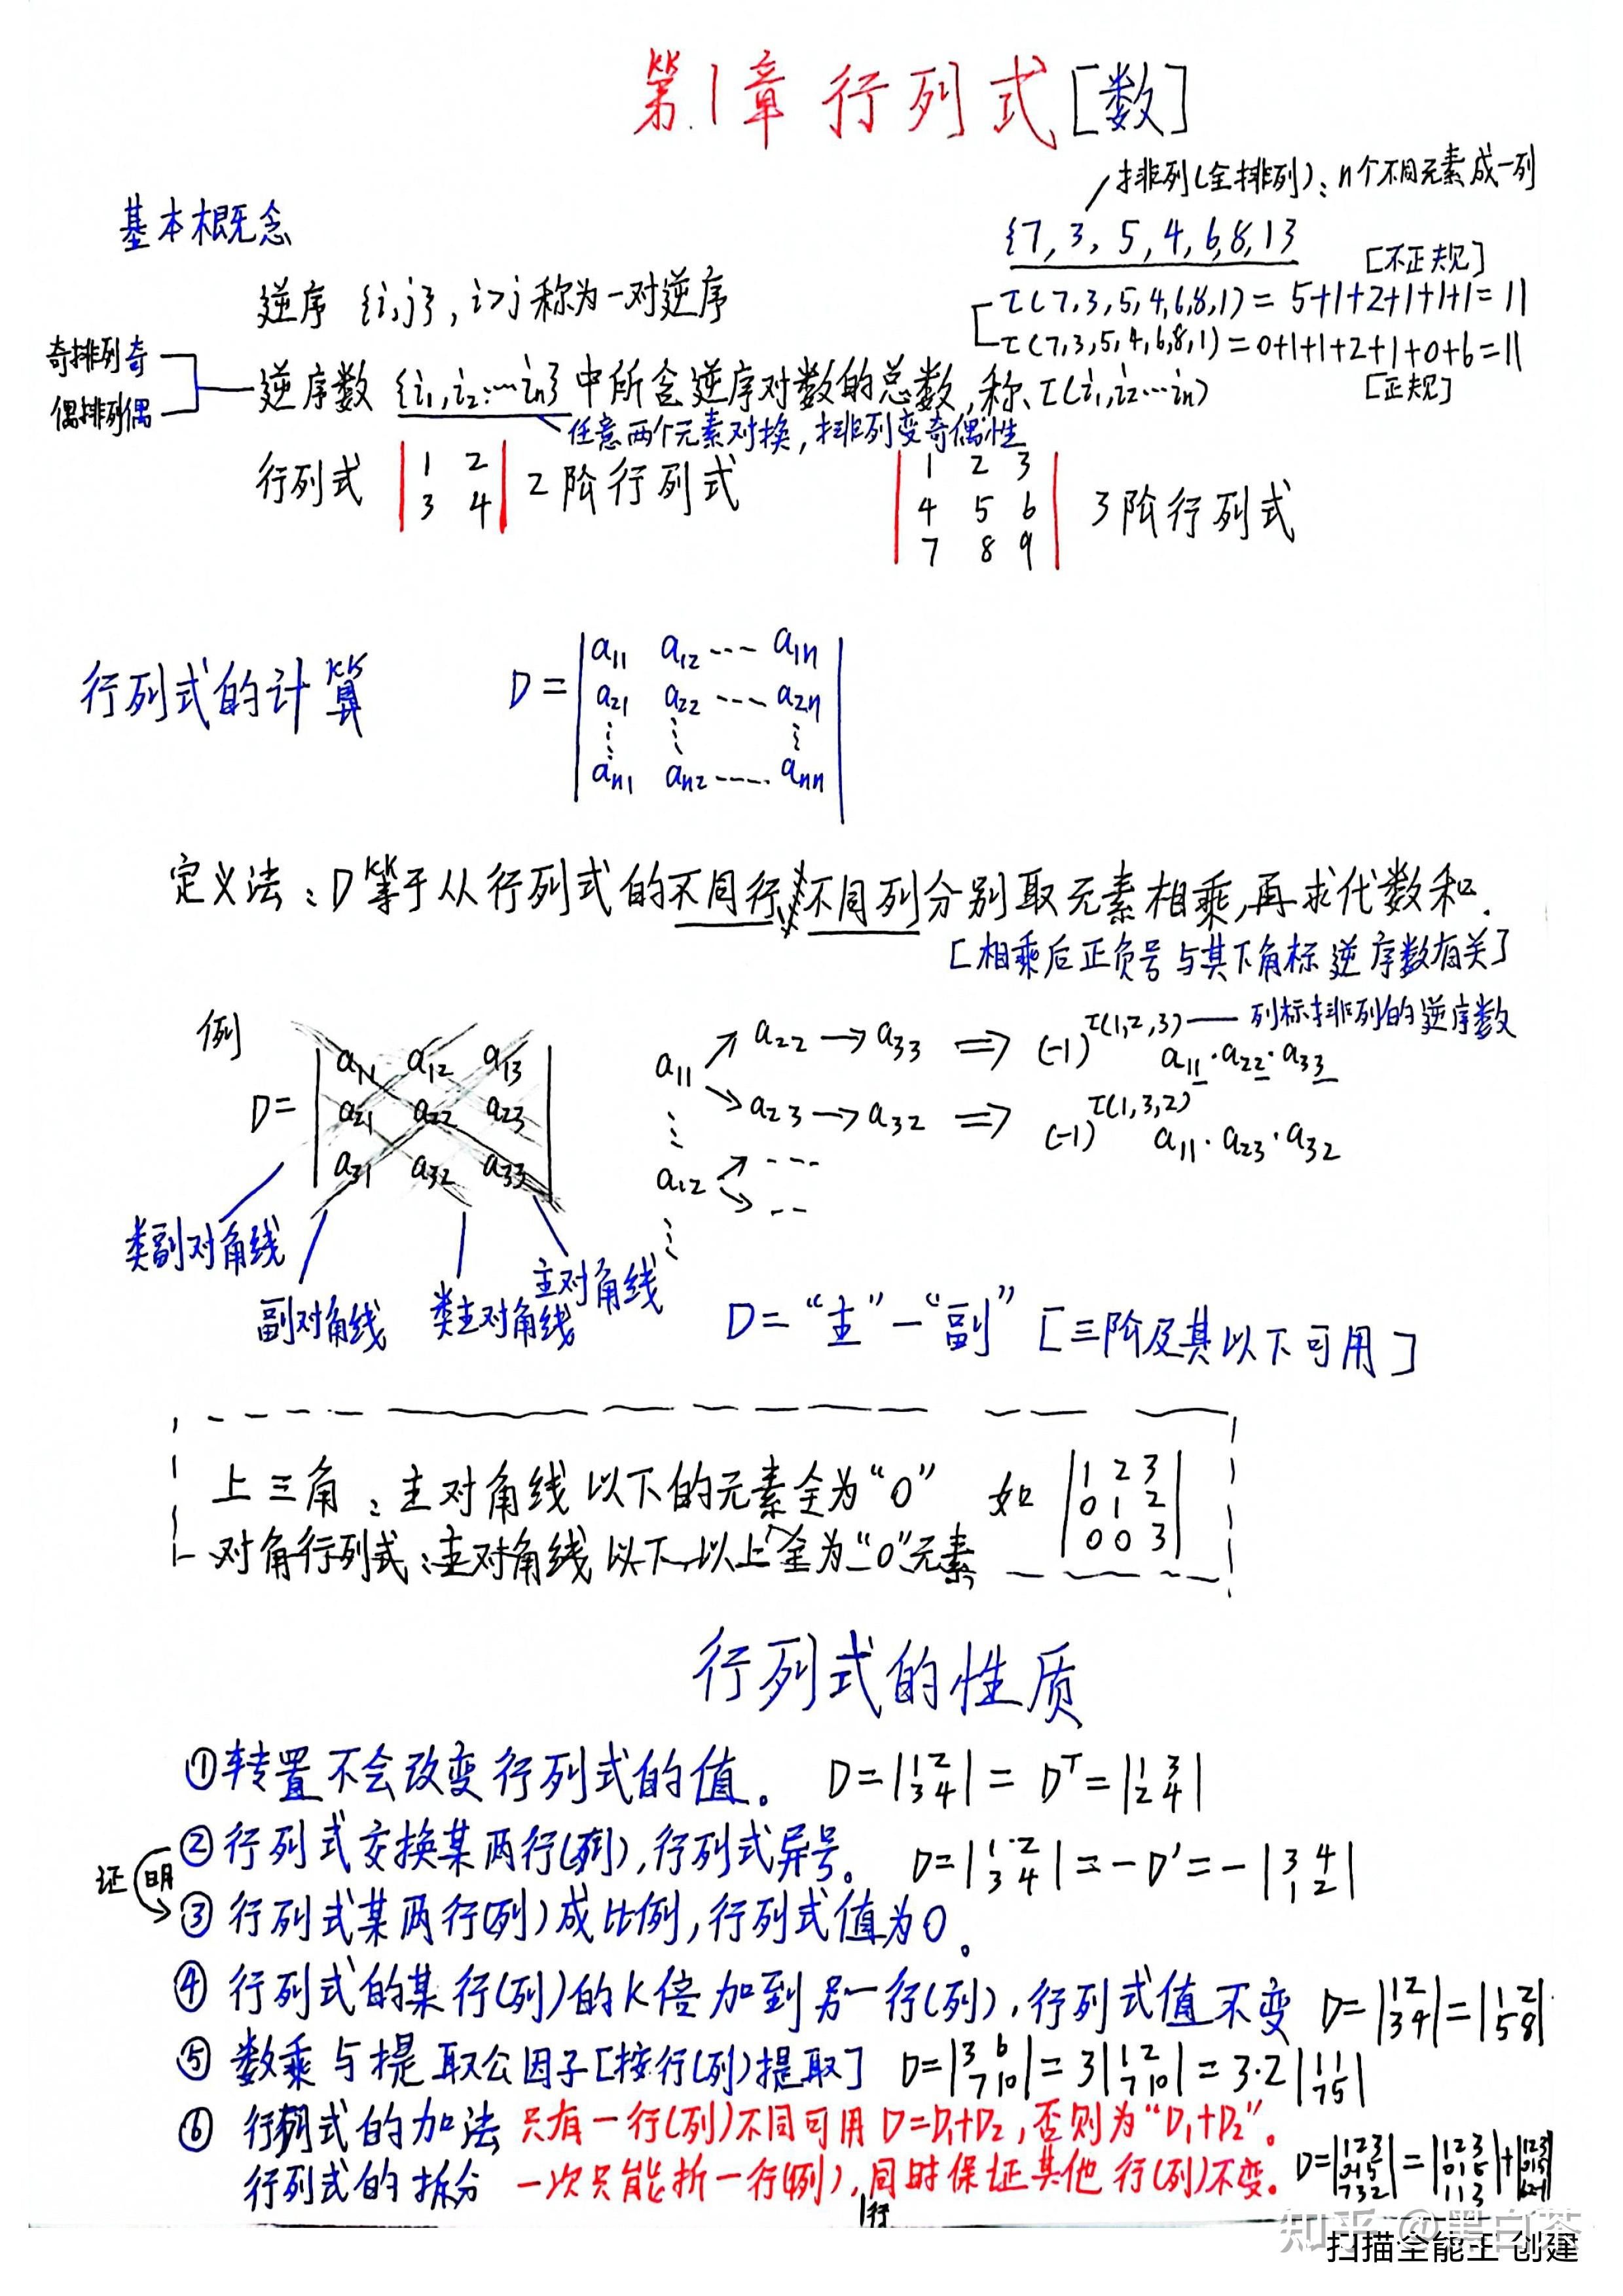 第1章 行列式[数]
排列(全排列):n个不同元素成一列
基本概念
{7,3,5,4,6,8,1}
[不正规]
逆序 {i,j},i>j 称为一对逆序
τ(7,3,5,4,6,8,1)=5+1+2+1+1+1=11
τ(7,3,5,4,6,8,1)=0+1+1+2+1+0+6=11
[正规]
奇排列奇
偶排列偶
逆序数 {i₁,i₂…iₙ}中所含逆序对数的总数,称τ(i₁,i₂…iₙ)
任意两个元素对换,排列变奇偶性
行列式 |1 2| 2阶行列式 |1 2 3|
|3 4| |4 5 6| 3阶行列式
|7 8 9|
行列式的计算 D=
|a₁₁ a₁₂ … a₁ₙ|
|a₂₁ a₂₂ … a₂ₙ|
|⋮ ⋮ ⋮|
|aₙ₁ aₙ₂ … aₙₙ|
定义法:D等于从行列式的不同行、不同列分别取元素相乘,再求代数和.
[相乘后正负号与其下角标逆序数有关]
例
D=
|a₁₁ a₁₂ a₁₃|
|a₂₁ a₂₂ a₂₃|
|a₃₁ a₃₂ a₃₃|
a₁₁ ↗ a₂₂→a₃₃ ⇒ (-1)^τ(1,2,3) a₁₁·a₂₂·a₃₃
列标排列的逆序数
↘ a₂₃→a₃₂ ⇒ (-1)^τ(1,3,2) a₁₁·a₂₃·a₃₂
⋮
a₁₂ ↗ ---
↘ --
⋮
类副对角线
副对角线
类主对角线
主对角线
D="主"-"副" [三阶及其以下可用]
上三角:主对角线以下的元素全为"0" 如
|1 2 3|
|0 1 2|
|0 0 3|
对角行列式:主对角线以下、以上全为"0"元素
行列式的性质
①转置不会改变行列式的值。 D=|1 2; 3 4|=Dᵀ=|1 3; 2 4|
②行列式交换某两行(列),行列式异号。 D=|1 2; 3 4|=-D'=-|3 4; 1 2|
证明
③行列式某两行(列)成比例,行列式值为0。
④行列式的某行(列)的K倍加到另一行(列),行列式值不变 D=|1 2; 3 4|=|1 2; 5 8|
⑤数乘与提取公因子[按行(列)提取] D=|3 6; 7 10|=3|1 2; 7 10|=3·2|1 1; 7 5|
⑥行列式的加法 只有一行(列)不同可用D=D₁+D₂,否则为"D₁+D₂"。
行列式的拆分 一次只能折一行(列),同时保证其他行(列)不变。
1行
知乎 @黑白茶
扫描全能王 创建